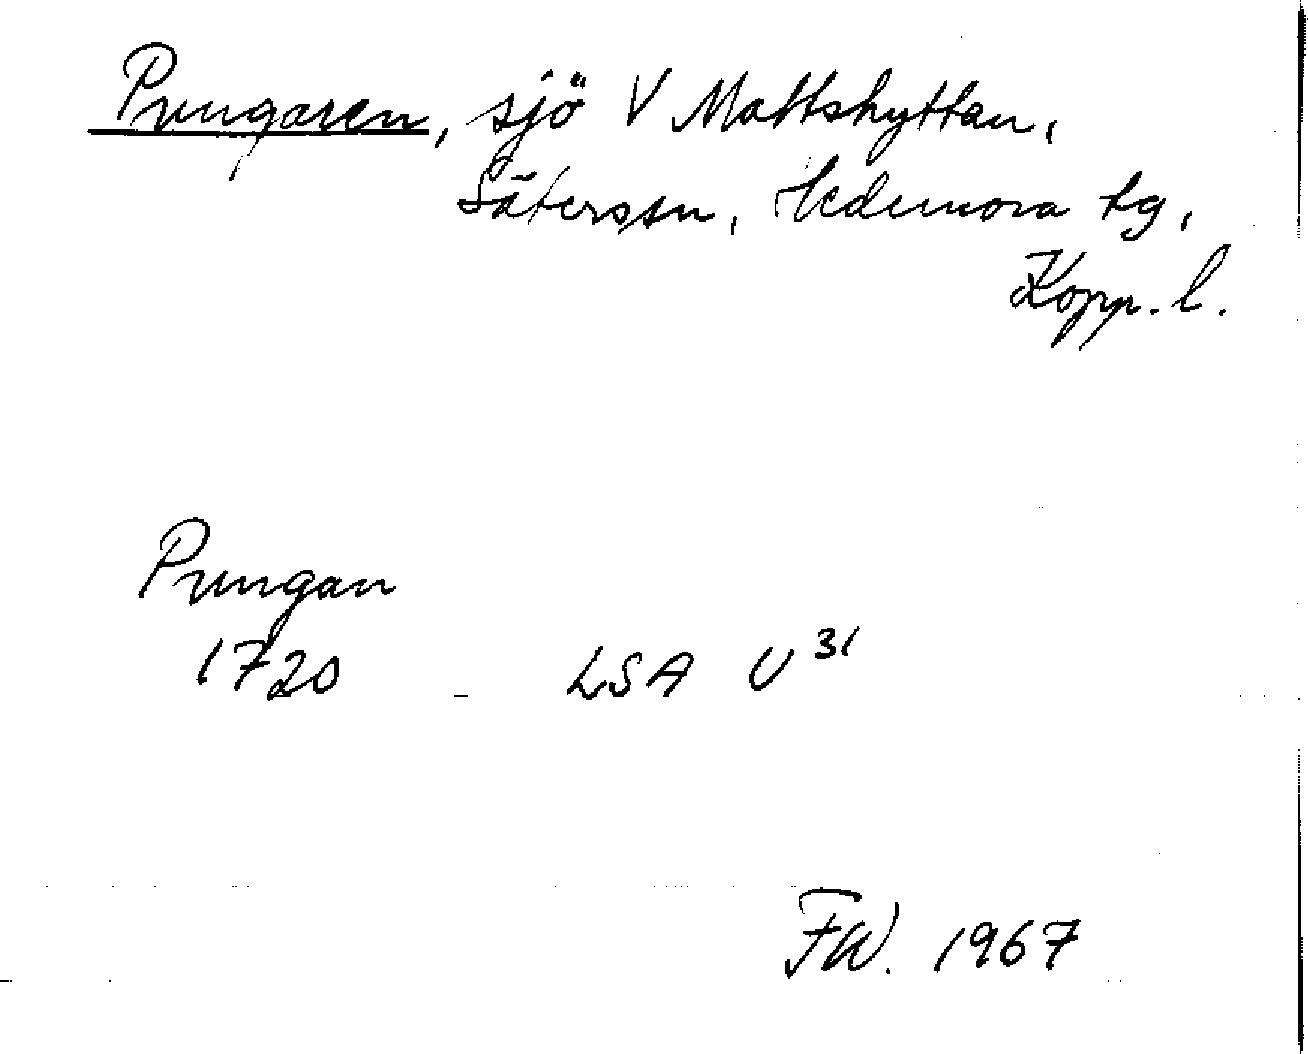 Pungaren, sjö V Mattshyttan,
Säterssn, Hedemora tg,
Kopp. l.
Pungan
1720 LSA U31
FW. 1967